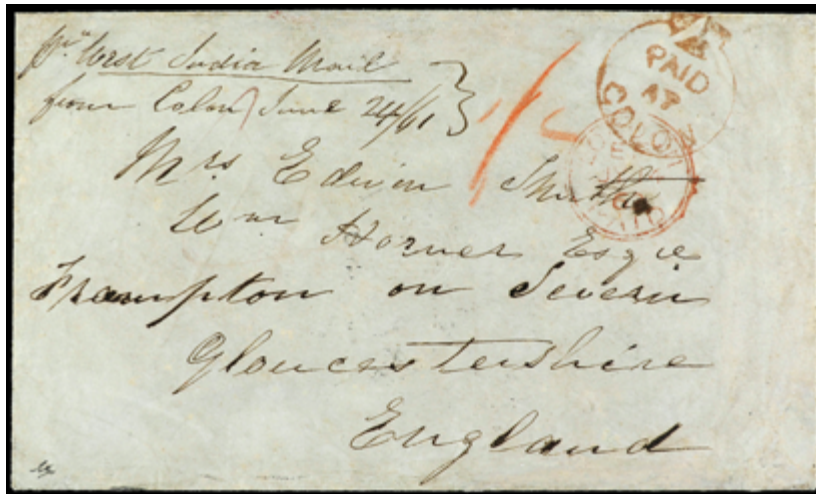 Pr West India Mail
from Colon June 24/61
1/-
PAID
AT
COLON
PAID
Mrs Edwin Smith
Wm Horner Esqre
Frampton on Severn
Gloucestershire
England